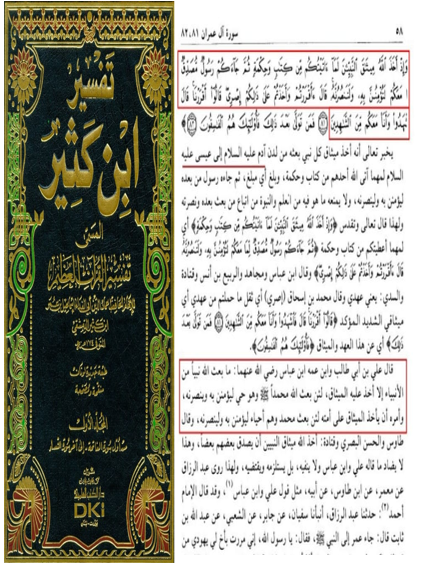 تفسير
ابن كثير
المسمى
تفسير القرآن العظيم
المجلد الأول
DKI
٥٨
سورة آل عمران ٨١، ٨٢
وَإِذْ أَخَذَ اللَّهُ مِيثَٰقَ ٱلنَّبِيِّـۧنَ لَمَآ ءَاتَيْتُكُم مِّن كِتَٰبٍ وَحِكْمَةٍ ثُمَّ جَآءَكُمْ رَسُولٌ مُّصَدِّقٌ
مَعَكُمْ لَتُؤْمِنُنَّ بِهِۦ وَلَتَنصُرُنَّهُۥ قَالَ ءَأَقْرَرْتُمْ وَأَخَذْتُمْ عَلَىٰ ذَٰلِكُمْ إِصْرِى قَالُوٓا۟ أَقْرَرْنَا قَالَ
فَٱشْهَدُوا۟ وَأَنَا۠ مَعَكُم مِّنَ ٱلشَّٰهِدِينَ ﴿٨١﴾ فَمَن تَوَلَّىٰ بَعْدَ ذَٰلِكَ فَأُو۟لَٰٓئِكَ هُمُ ٱلْفَٰسِقُونَ ﴿٨٢﴾
يخبر تعالى أنه أخذ ميثاق كل نبي بعثه من لدن آدم عليه السلام إلى عيسى عليه
السلام لمهما آتى الله أحدهم من كتاب وحكمة، وبلغ أي مبلغ، ثم جاءه رسول من بعده
ليؤمنن به ولينصرنه، ولا يمنعه ما هو فيه من العلم والنبوة من اتباع من بعث بعده ونصرته
ولهذا قال تعالى وتقدس ﴿وَإِذْ أَخَذَ اللَّهُ مِيثَٰقَ ٱلنَّبِيِّـۧنَ لَمَآ ءَاتَيْتُكُم مِّن كِتَٰبٍ وَحِكْمَةٍ﴾ أي
لمهما أعطيتكم من كتاب وحكمة ﴿ثُمَّ جَآءَكُمْ رَسُولٌ مُّصَدِّقٌ لِّمَا مَعَكُمْ لَتُؤْمِنُنَّ بِهِۦ وَلَتَنصُرُنَّهُۥ
قَالَ ءَأَقْرَرْتُمْ وَأَخَذْتُمْ عَلَىٰ ذَٰلِكُمْ إِصْرِى﴾ وقال ابن عباس ومجاهد والربيع بن أنس وقتادة
والسدي: يعني عهدي وقال محمد بن إسحاق (إصري) أي ثقل ما حملتم من عهدي أي
ميثاقي الشديد المؤكد ﴿قَالُوٓا۟ أَقْرَرْنَا قَالَ فَٱشْهَدُوا۟ وَأَنَا۠ مَعَكُم مِّنَ ٱلشَّٰهِدِينَ فَمَن تَوَلَّىٰ بَعْدَ
ذَٰلِكَ﴾ أي عن هذا العهد والميثاق ﴿فَأُو۟لَٰٓئِكَ هُمُ ٱلْفَٰسِقُونَ﴾.
قال علي بن أبي طالب وابن عمه ابن عباس رضي الله عنهما: ما بعث الله نبياً من
الأنبياء إلا أخذ عليه الميثاق، لئن بعث الله محمداً ﷺ وهو حي ليؤمنن به وينصرنه،
وأمره أن يأخذ الميثاق على أمته لئن بعث محمد وهم أحياء ليؤمنن به ولينصرنه، وقال
طاوس والحسن البصري وقتادة: أخذ الله ميثاق النبيين أن يصدق بعضهم بعضاً، وهذا
لا يضاد ما قاله علي وابن عباس ولا ينفيه، بل يستلزمه ويقتضيه، ولهذا روى عبد الرزاق
عن معمر، عن ابن طاوس، عن أبيه، مثل قول علي وابن عباس(١)، وقد قال الإمام
أحمد(٢): حدثنا عبد الرزاق، أنبأنا سفيان، عن جابر، عن الشعبي، عن عبد الله بن
ثابت قال: جاء عمر إلى النبي ﷺ، فقال: يا رسول الله، إني مررت بأخ لي يهودي من